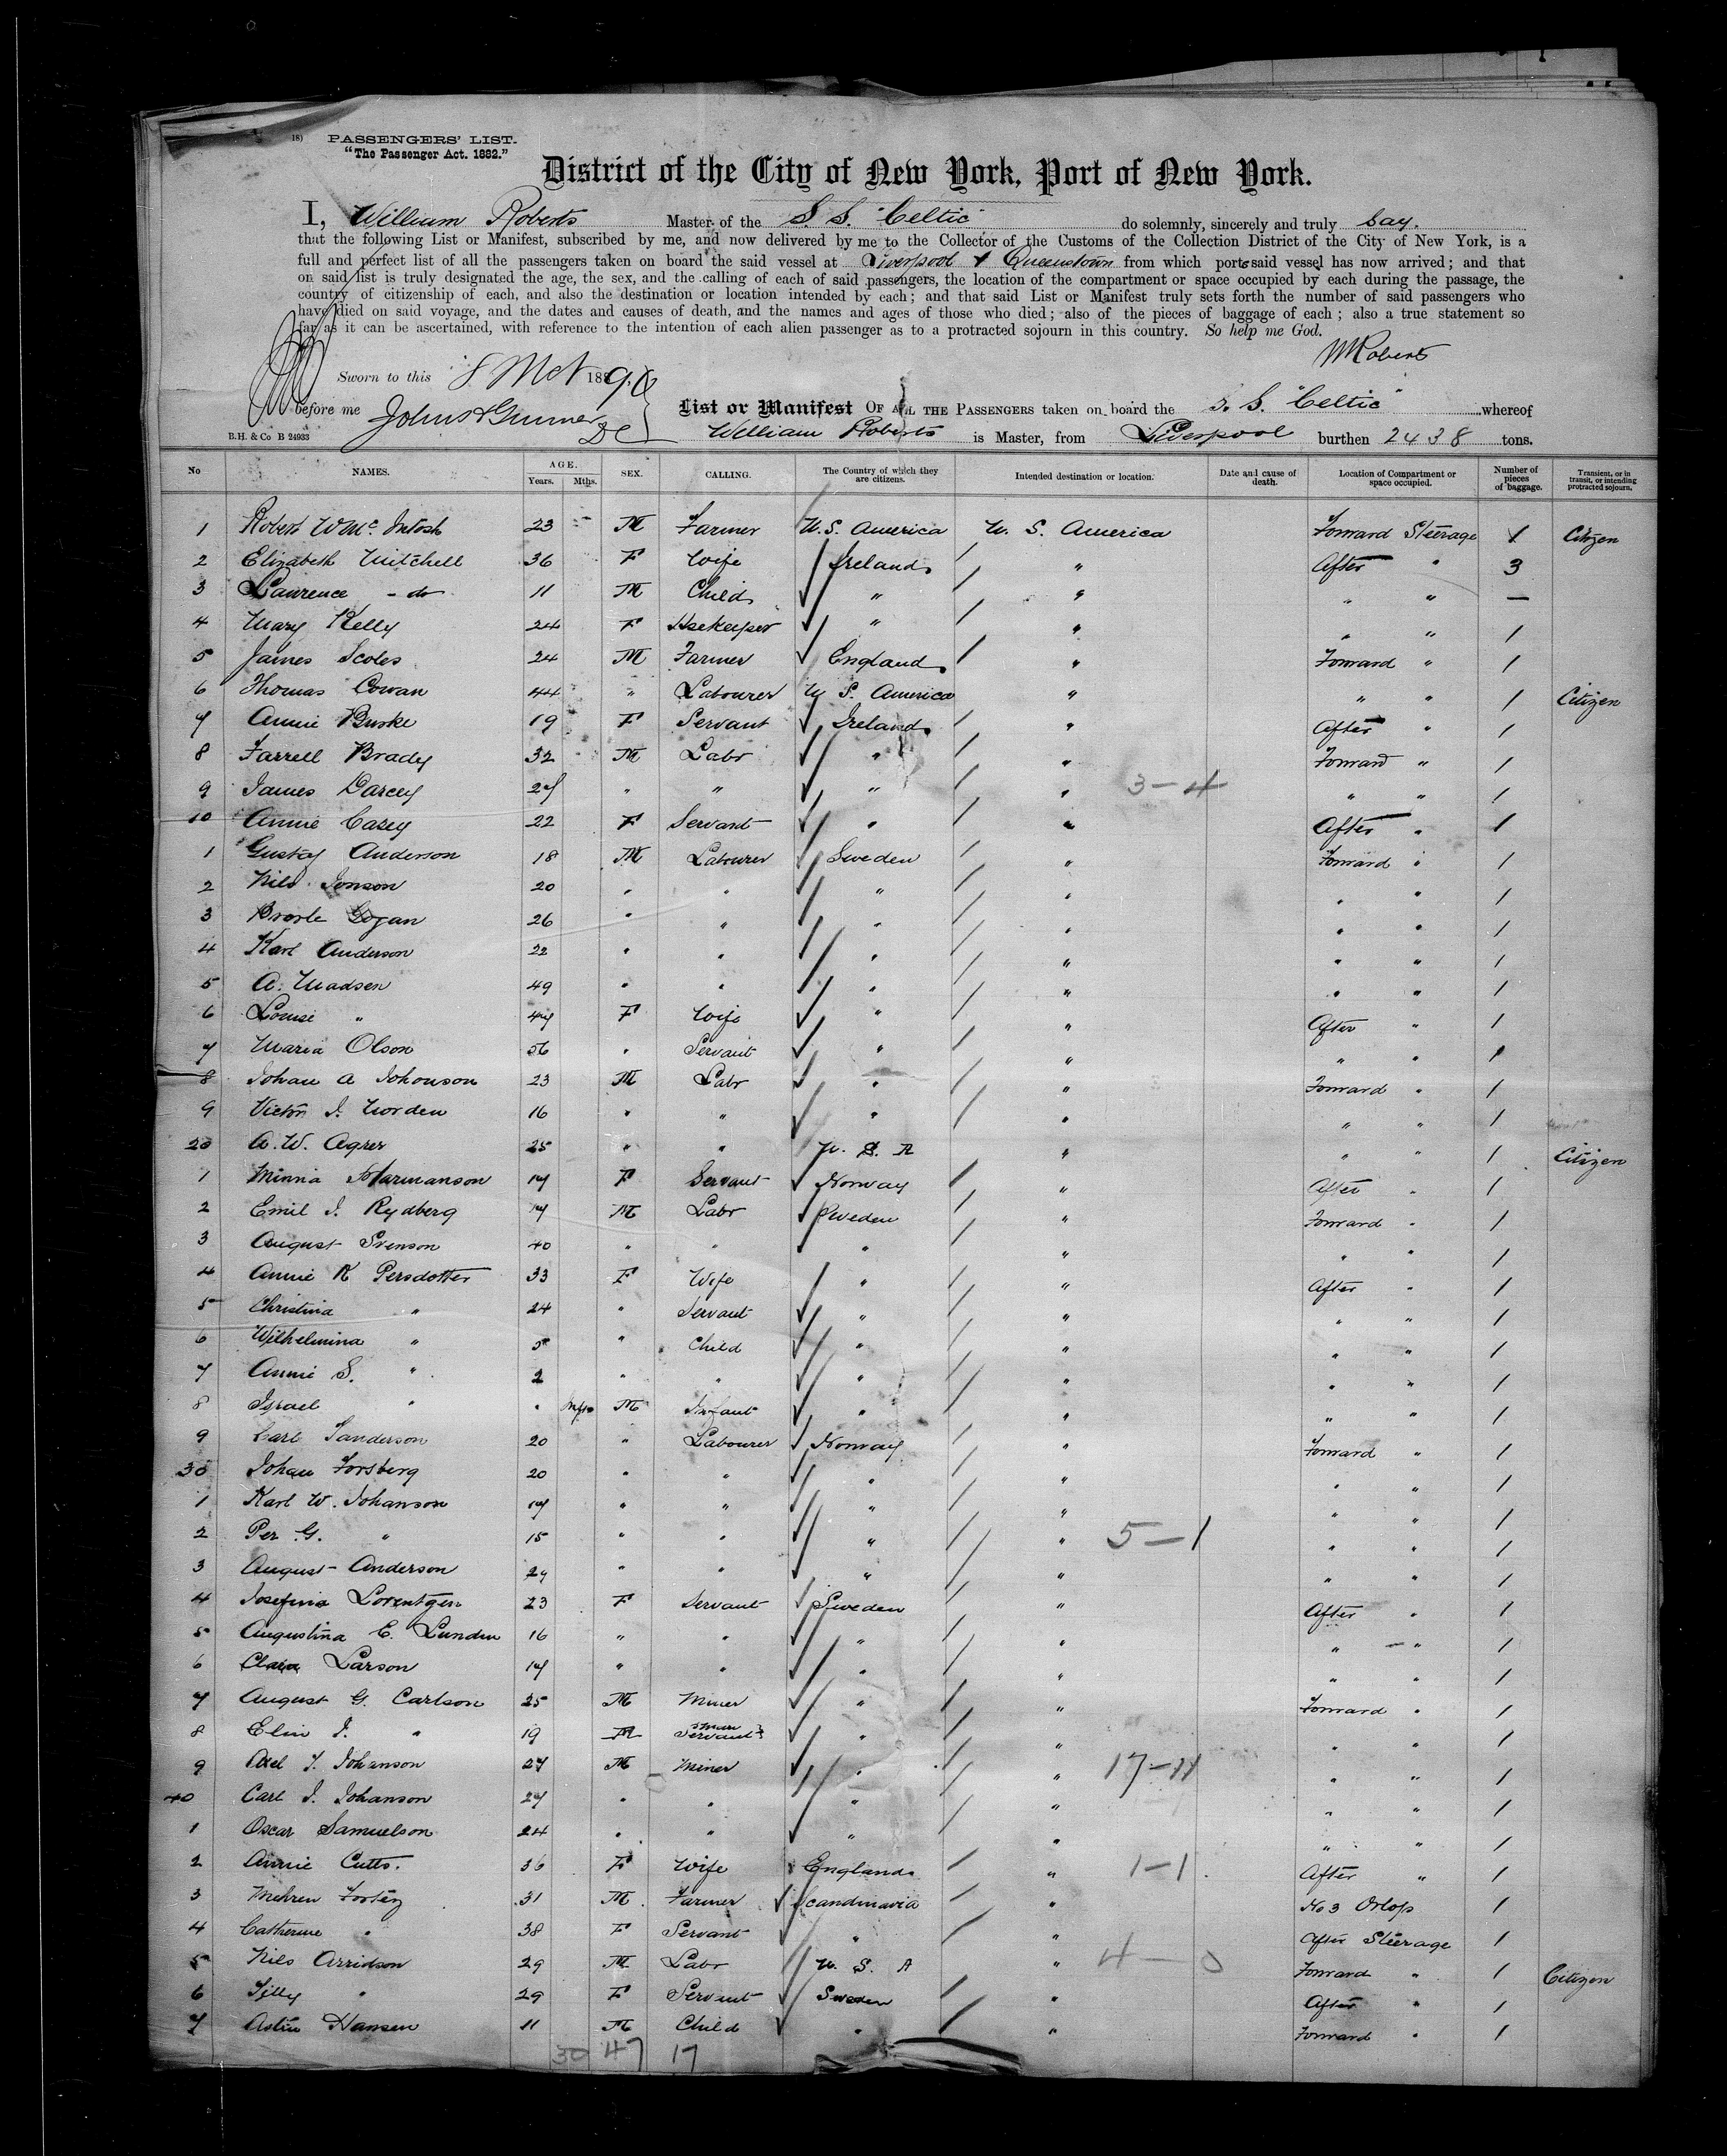 18) PASSENGERS' LIST.
"The Passenger Act. 1882."
District of the City of New York, Port of New York.
I, William Roberts Master of the S. S. "Celtic" do solemnly, sincerely and truly say.
that the following List or Manifest, subscribed by me, and now delivered by me to the Collector of the Customs of the Collection District of the City of New York, is a
full and perfect list of all the passengers taken on board the said vessel at Liverpool & Queenstown from which ports said vessel has now arrived; and that
on said list is truly designated the age, the sex, and the calling of each of said passengers, the location of the compartment or space occupied by each during the passage, the
country of citizenship of each, and also the destination or location intended by each; and that said List or Manifest truly sets forth the number of said passengers who
have died on said voyage, and the dates and causes of death, and the names and ages of those who died; also of the pieces of baggage of each; also a true statement so
far as it can be ascertained, with reference to the intention of each alien passenger as to a protracted sojourn in this country. So help me God.
WRoberts
Sworn to this 8 188 90
before me
List or Manifest OF ALL THE PASSENGERS taken on board the S. S. "Celtic" whereof
B.H. & Co B 24933 William Roberts is Master, from Liverpool burthen 2438 tons.
No NAMES. AGE. Years. Mths. SEX. CALLING. The Country of which they are citizens. Intended destination or location. Date and cause of death. Location of Compartment or space occupied. Number of pieces of baggage. Transient, or in transit, or intending protracted sojourn.
1 Robert W Mc. Intosh 23 - M Farmer U.S. America U. S. America Forward Steerage 1 Citizen
2 Elizabeth Mitchell 36 F Wife Ireland " After " 3
3 Lawrence - do 11 M Child " " " " —
4 Mary Kelly 24 F Hsekeeper " " " " 1
5 James Scoles 24 M Farmer England " Forward " 1
6 Thomas Cowan 44 " Labourer U S. America " " " 1 Citizen
7 Annie Burke 19 F Servant Ireland " After " 1
8 Farrell Brady 32 M Labr " " Forward " 1
9 James Darcey 27 " " " " 3-4 " " 1
10 Annie Casey 22 F Servant " " After " 1
1 Gustaf Anderson 18 M Labourer Sweden " Forward " 1
2 Nils Jonson 20 " " " " " " 1
3 26 " " " " " " 1
4 Karl Anderson 22 " " " " " " 1
5 A. Madsen 49 " " " " " " 1
6 Louise " 47 F Wife " " After " 1
7 Maria Olson 56 " Servant " " " " 1
8 Johan A Johonson 23 M Labr " " Forward " 1
9 Victor J. Norden 16 " " " " " " 1
20 A. W. Agrer 25 " " U. S. A " " " 1 Citizen
1 Minnia Harmanson 17 F Servant Norway " After " 1
2 Emil J. Rydberg 17 M Labr Sweden " Forward " 1
3 August Svenson 40 " " " " " " 1
4 Annie K Persdotter 33 F Wife " " After " 1
5 Christina " 24 " Servant " " " " 1
6 Wilhelmina " 5 " Child " " " " 1
7 Annie S. " 2 " " " " " " 1
8 Israel " " M Infant " " " " 1
9 Carl Sanderson 20 " Labourer Norway " Forward " 1
30 Johan Forsberg 20 " " " " " " 1
1 Karl W. Johanson 17 " " " " " " 1
2 Per G. " 15 " " " " 5-1 " " 1
3 August Anderson 29 " " " " " " 1
4 Josefina Lorentzen 23 F Servant Sweden " After " 1
5 Augustina E. Lundin 16 " " " " " " 1
6 Clara Larson 17 " " " " " " 1
7 August G. Carlson 25 M Miner " " Forward " 1
8 Elin J. " 19 M Servant " " " " 1
9 Axel J. Johanson 27 M Miner " " 17-11 " " 1
40 Carl J. Johanson 27 " " " " " " 1
1 Oscar Samuelson 24 " " " " " " 1
2 Annie Cutts. 36 F Wife England " 1-1 After " 1
3 31 M Farmer Scandinavia " No 3 Orlop 1
4 Catherine " 38 F Servant " " After Steerage 1
5 Nils Arvidson 29 M Labr U. S. A " 4-0 Forward " 1 Citizen
6 Tilly " 29 F Servant Sweden " After " 1
7 Hansen 11 M Child " " Forward " 1
30 47 17